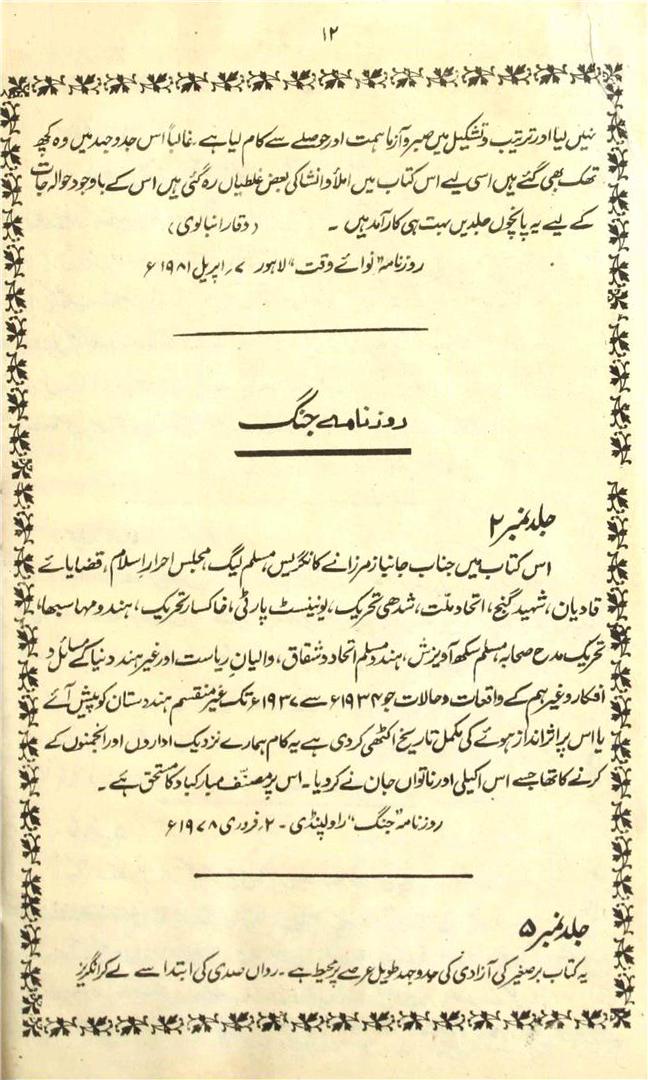 ۱۲
نہیں لیا اور ترتیب و تشکیل میں صبر و آزما ہمت اور حوصلے سے کام لیا ہے، غالباً اس جدوجہد میں وہ کچھ
تھک بھی گئے ہیں اسی لیے اس کتاب میں املأ و انشا کی بعض غلطیاں رہ گئی ہیں اس کے باوجود حوالہ جات
کے لیے یہ پانچوں جلدیں بہت ہی کارآمد ہیں ۔ (وقار انبالوی)
روزنامہ "نوائے وقت" لاہور ۷؍ اپریل ۱۹۸۱ء
روزنامہ جنگ
جلد نمبر ۲
اس کتاب میں جناب جانباز مرزا نے کانگریس، مسلم لیگ، مجلس احرارِ اسلام، قضایائے
قادیان، شہید گنج، اتحاد ملّت، شدھی تحریک، یونینسٹ پارٹی، خاکسار تحریک، ہندو مہا سبھا،
تحریک مدح صحابہ، مسلم سکھ آویزش، ہندو مسلم اتحاد و شقاق، والیانِ ریاست اور غیر ہند دنیا کے مسائل و
افکار و غیر ہم کے واقعات و حالات جو ۱۹۳۴ء سے ۱۹۳۷ء تک غیر منقسم ہندوستان کو پیش آئے
یا اس پر اثر انداز ہوئے کی مکمل تاریخ اکٹھی کر دی ہے یہ کام ہمارے نزدیک اداروں اور انجمنوں کے
کرنے کا تھا جسے اس اکیلی اور ناتواں جان نے کر دیا۔ اس پر مصنّف مبارکباد کا مستحق ہے ۔
روزنامہ "جنگ" راولپنڈی ۔ ۲؍ فروری ۱۹۷۸ء
جلد نمبر ۵
یہ کتاب برصغیر کی آزادی کی جدوجہد طویل عرصے پر محیط ہے ۔ رواں صدی کی ابتدا سے لے کر انگریز